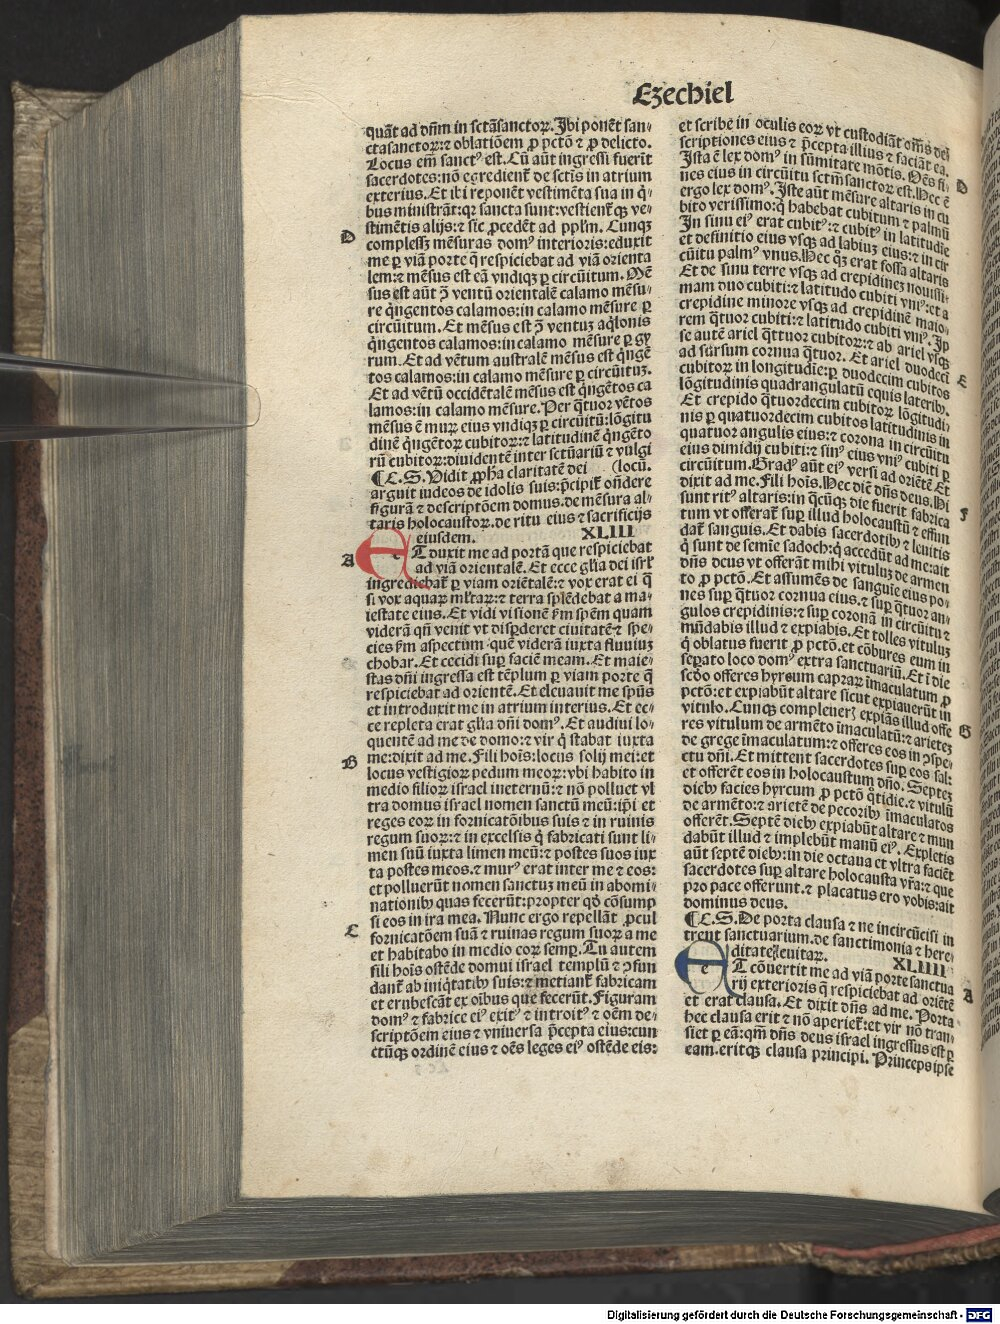 Ezechiel
quāt ad dn̄m in sctāsanctoꝝ. Ibi ponēt san⸗
ctasanctoꝝ: ⁊ oblatiōem ꝓ pctō ⁊ ꝓ delicto.
Locus em̄ sanctꝰ est. Cū aūt ingressi fuerīt
sacerdotes: nō egrediēnt̄ de sctīs in atrium
exterius. Et ibi reponēt vestimēta sua in q̄⸗
bus ministrāt: qꝛ sancta sunt: vestient̄qꝫ ve⸗
stimētis alijs: ⁊ sic ꝓcedēt ad pplm̄. Cunqꝫ
D
complessꝫ mēsuras domꝰ interioris: eduxit
me ꝑ viā porte q̄ respiciebat ad viā orienta
lem: ⁊ mēsus est eā vndiqꝫ ꝑ circūitum. Mē
sus est aūt ꝯ̄ ventū orientalē calamo mēsu⸗
re qͥngentos calamos: in calamo mēsure ꝑ
circūitum. Et mēsus est ꝯ̄ ventuꝫ aqͥlonis
qͥngentos calamos: in calamo mēsure ꝑ gy
rum. Et ad vētum australē mēsus est qͥngē
tos calamos: in calamo mēsure ꝑ circūituꝫ.
Et ad vētū occidētalē mēsus est qͥngētos ca
lamos: in calamo mēsure. Per q̄tuor vētos
mēsus ē murꝫ eius vndiqꝫ ꝑ circūitū: lōgitu
dinē qͥngētoꝝ cubitoꝝ: ⁊ latitudinē qͥngēto
rū cubitoꝝ: diuidentē inter sctūariū ⁊ vulgi
¶C.S. Vidit ꝓpha claritatē dei (locū.
arguit iudeos de idolis suis: p̄cipit̄ on̄dere
figurā ⁊ descriptōem domus. de mēsura al⸗
taris holocaustoꝝ. de ritu eius ⁊ sacrificijs
eiusdem. XLIII
A
ET duxit me ad portā que respiciebat
ad viā orientalē. Et ecce gl̄ia dei isrl̄
ingrediebat̄ ꝑ viam oriētalē: ⁊ vox erat ei q̄
si vox aquaꝝ mltaꝝ: ⁊ terra splēdebat a ma⸗
iestate eius. Et vidi visionē ẜm spēm quam
viderā qn̄ venit vt disꝑderet ciuitatē: ⁊ spe⸗
cies ẜm aspectum quē viderā iuxta fluuiuꝫ
chobar. Et cecidi suꝑ faciē meam. Et maie⸗
stas dn̄i ingressa est tēplum ꝑ viam porte q̄
respiciebat ad orientē. Et eleuauit me spūs
et introduxit me in atrium interius. Et ec⸗
ce repleta erat gl̄ia dn̄i domꝰ. Et audiui lo⸗
quentē ad me de domo: ⁊ vir q̄ stabat iuxta
B
me: dixit ad me. Fili hoīs: locus solij mei: et
locus vestigioꝝ pedum meoꝝ: vbi habito in
medio filioꝝ israel ineternū: ⁊ nō polluet vl
tra domus israel nomen sanctū meū: ip̄i et
reges eoꝝ in fornicatōibus suis ⁊ in ruinis
regum suoꝝ: ⁊ in excelsis qͥ fabricati sunt li⸗
men suū iuxta limen meū: ⁊ postes suos iux
ta postes meos. ⁊ murꝰ erat inter me ⁊ eos:
et polluerūt nomen sanctuꝫ meū in abomi⸗
nationibꝫ quas fecerūt: propter qd̄ cōsump
si eos in ira mea. Nunc ergo repellāt ꝓcul
C
fornicatōem suā ⁊ ruinas regum suoꝝ a me
et habitabo in medio eoꝝ semꝑ. Tu autem
fili hoīs ostēde domui israel templū ⁊ ꝯfun
dant̄ ab iniqͥtatibꝫ suis: ⁊ metiant̄ fabricam
et erubescāt ex oībus que fecerūt. Figuram
domꝰ ⁊ fabrice eiꝰ exitꝰ ⁊ introitꝰ ⁊ oēm de⸗
scriptōem eius ⁊ vniuersa p̄cepta eius: cun
ctūqꝫ ordinē eius ⁊ oēs leges eiꝰ ostēde eis:
et scribe in oculis eoꝝ vt custodiāt om̄s de⸗
scriptiones eius ⁊ p̄cepta illius ⁊ faciāt ea.
Ista ē lex domꝰ in sūmitate mōtis. Oēs fi⸗
D
nes eius in circūitu sctm̄sanctoꝝ est. Hec ē
ergo lex domꝰ. Iste aūt mēsure altaris in cu
bito verissimo: q̄ habebat cubitum ⁊ palmū
In sinu eiꝰ erat cubitꝰ: ⁊ cubitꝰ in latitudīe
et definitio eius vsqꝫ ad labiuꝫ eius: ⁊ in cir
cūitu palmꝰ vnus. Hec qͥꝫ erat fossa altaris
Et de sinu terre vsqꝫ ad crepidineꝫ nouissi⸗
mam duo cubiti: ⁊ latitudo cubiti vniꝰ: et a
crepidine minore vsqꝫ ad crepidinē maio⸗
rem q̄tuor cubiti: ⁊ latitudo cubiti vniꝰ. Ip
se autē ariel q̄ttuor cubitoꝝ: ⁊ ab ariel vsqꝫ
ad sursum cornua q̄tuor. Et ariel duodecī
E
cubitoꝝ in longitudīe: ꝑ duodecim cubitos
lōgitudinis quadrangulatū equis lateribꝫ.
Et crepido q̄tuordecim cubitoꝝ lōgitudi⸗
nis ꝑ quatuordecim cubitos latitudinis in
quatuor angulis eius: ⁊ corona in circūitu
eius dimidij cubiti: ⁊ sinꝰ eius vniꝰ cubiti ꝑ
circūitum. Gradꝰ aūt eiꝰ versi ad oriētē Et
dixit ad me. Fili hoīs. Hec dic̄ dn̄s deus. Hi
F
sunt ritꝰ altaris: in qͥcūqꝫ die fuerit fabrica
tum vt offerat̄ suꝑ illud holocaustū ⁊ effun
dat̄ sanguis. Et dabis sacerdotibꝫ ⁊ leuitis
qͥ sunt de semīe sadoch: qͥ accedūt ad me: ait
dn̄s deus vt offerāt mihi vituluꝫ de armen
to ꝓ pctō. Et assumēs de sanguīe eius po⸗
nes suꝑ q̄tuor cornua eius. ⁊ suꝑ q̄tuor an⸗
gulos crepidinis: ⁊ suꝑ coronā in circūitu ⁊
mūdabis illud ⁊ expiabis. Et tolles vituluꝫ
qͥ oblatus fuerit ꝓ pctō. et cōbures eum in
seꝑato loco domꝰ extra sanctuariū. Et ī die
scd̄o offeres hyrcum capraꝝ īmaculatum ꝓ
pctō: et expiabūt altare sicut expiauerūt in
vitulo. Cunqꝫ compleuerꝭ expiās illud offe
G
res vitulum de armēto īmaculatū: ⁊ arieteꝫ
de grege īmaculatum: ⁊ offeres eos in ꝯspe⸗
ctu dn̄i. Et mittent sacerdotes suꝑ eos sal:
et offerēt eos in holocaustum dn̄o. Septeꝫ
diebꝫ facies hyrcum ꝓ pctō qͦtidie. ⁊ vitulū
de armēto: ⁊ arietē de pecoribꝫ īmaculatos
offerēt. Septē diebꝫ expiabūt altare ⁊ mun
dabūt illud ⁊ implebūt manū eiꝰ. Expletis
aūt septē diebꝫ: in die octaua et vltra faciēt
sacerdotes suꝑ altare holocausta vr̄a: ⁊ que
pro pace offerunt. ⁊ placatus ero vobis: ait
dominus deus.
¶C.S. De porta clausa ⁊ ne incircūcisi in
trent sanctuarium. de sanctimonia ⁊ here⸗
ditate leuitaꝝ. XLIIII
ET cōuertit me ad viā porte sanctua
A
rij exterioris q̄ respiciebat ad oriētē
et erat clausa. Et dixit dn̄s ad me. Porta
hec clausa erit ⁊ nō aperiet̄: et vir nō tran⸗
siet ꝑ eā: qm̄ dn̄s deus israel ingressus est ꝑ
eam. eritqꝫ clausa principi. Princeps ipse
Digitalisierung gefördert durch die Deutsche Forschungsgemeinschaft - DFG